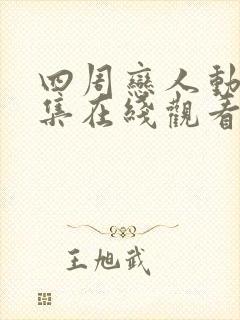 四周戀人動
集在綫觀看
王旭武